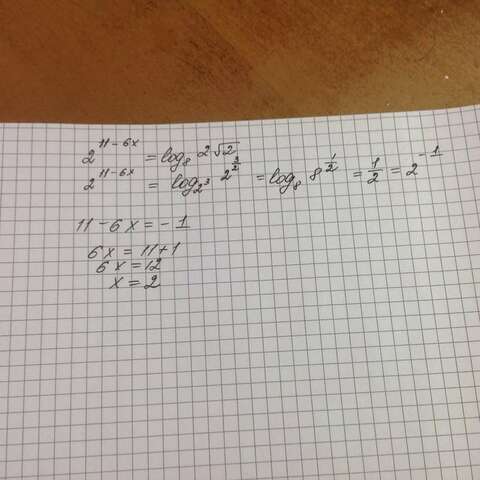 2^{11-6x} = log_8 2√2
2^{11-6x} = log_{2^3} 2^{3/2} = log_8 8^{1/2} = 1/2 = 2^{-1}
11-6x = -1
6x = 11+1
6x = 12
x = 2